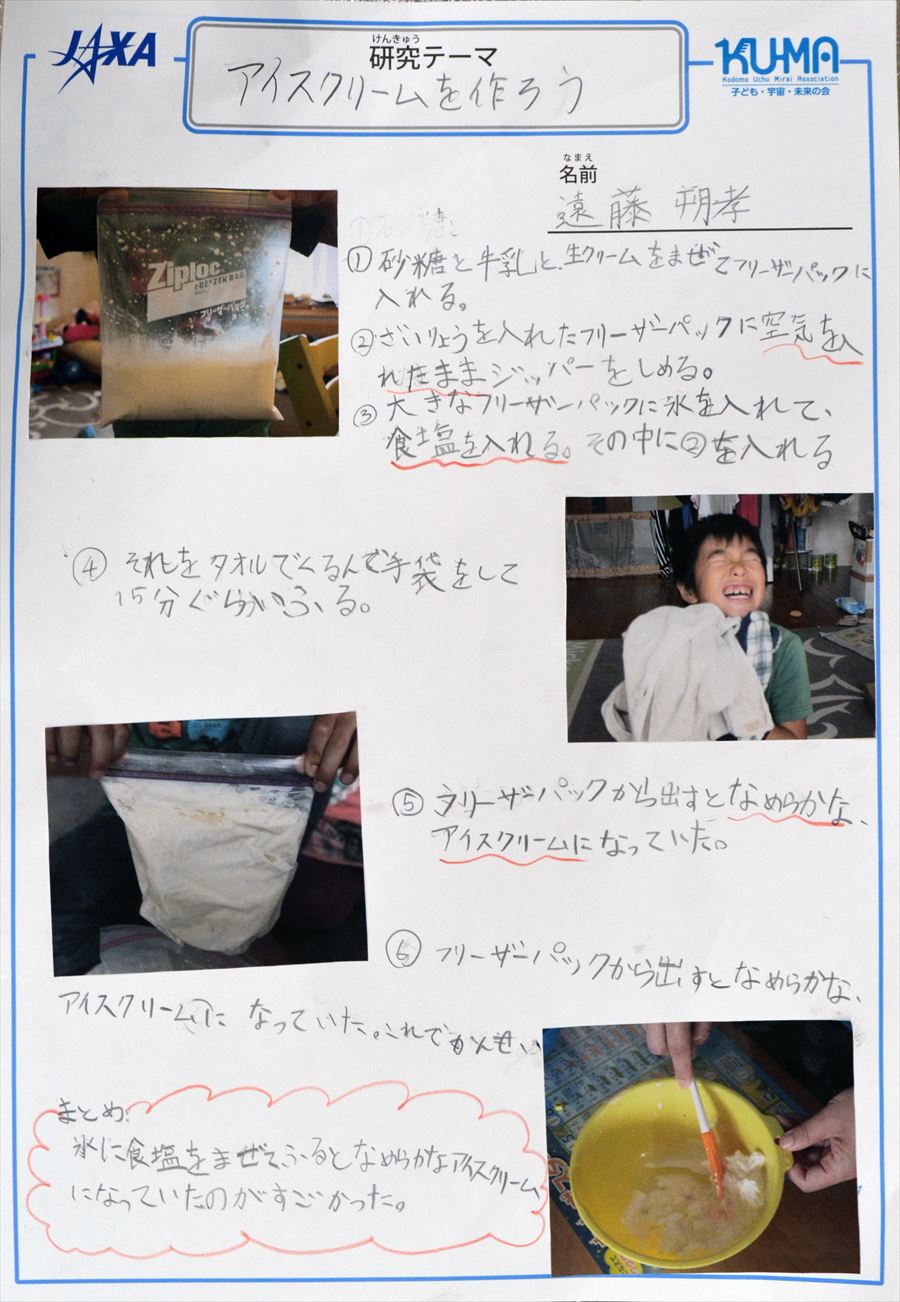 JAXA
けんきゅう
研究テーマ
アイスクリームを作ろう
KU-MA
Kodomo Uchu Mirai Association
子ども・宇宙・未来の会
なまえ
名前
遠藤 朔孝
Ziploc
FREEZER BAG
フリーザーバッグ
① 砂糖と牛乳と、生クリームをまぜてフリーザーパックに
入れる。
② ざいりょうを入れたフリーザーパックに空気を入
れたままジッパーをしめる。
③ 大きなフリーザーパックに氷を入れて、
食塩を入れる。その中に②を入れる
④ それをタオルでくるんで手袋をして
15分ぐらいふる。
⑤ フリーザーパックから出すとなめらかな、
アイスクリームになっていた。
⑥ フリーザーパックから出すとなめらかな、
アイスクリームに なっていた。これでかんせい
まとめ
氷に食塩をまぜてふるとなめらかなアイスクリーム
になっていたのがすごかった。